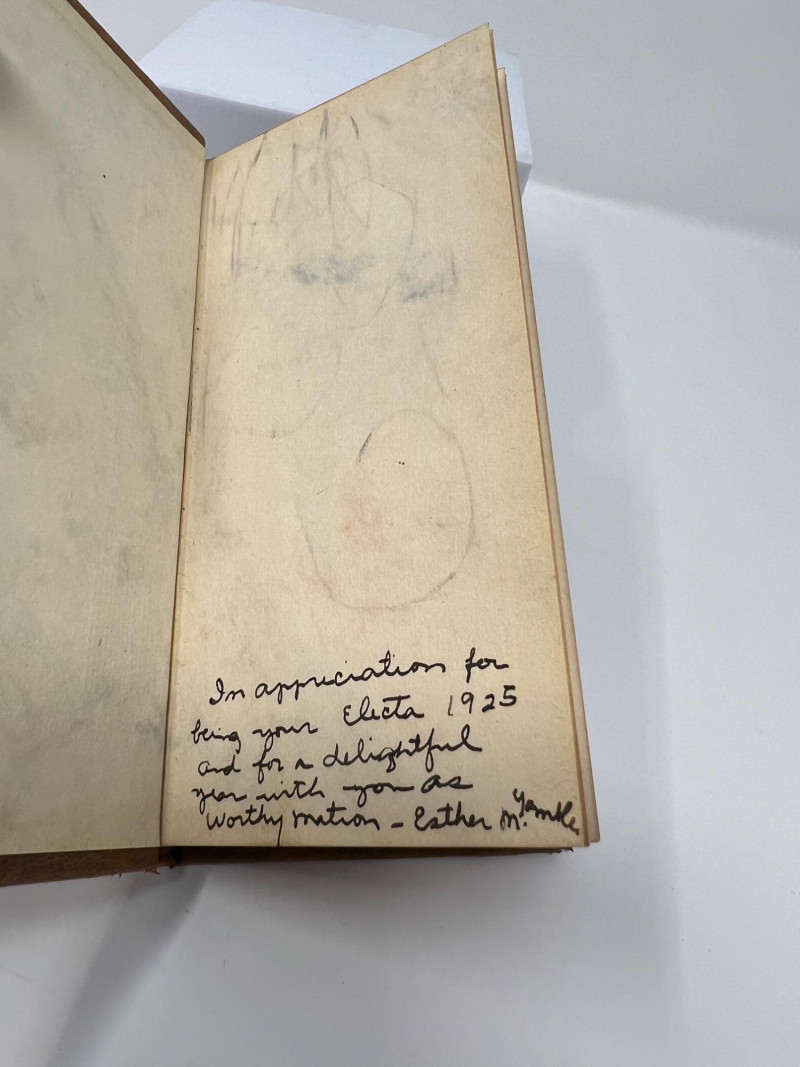 In appreciation for
being your Electa 1925
and for a delightful
year with you as
Worthy Matron - Esther M.